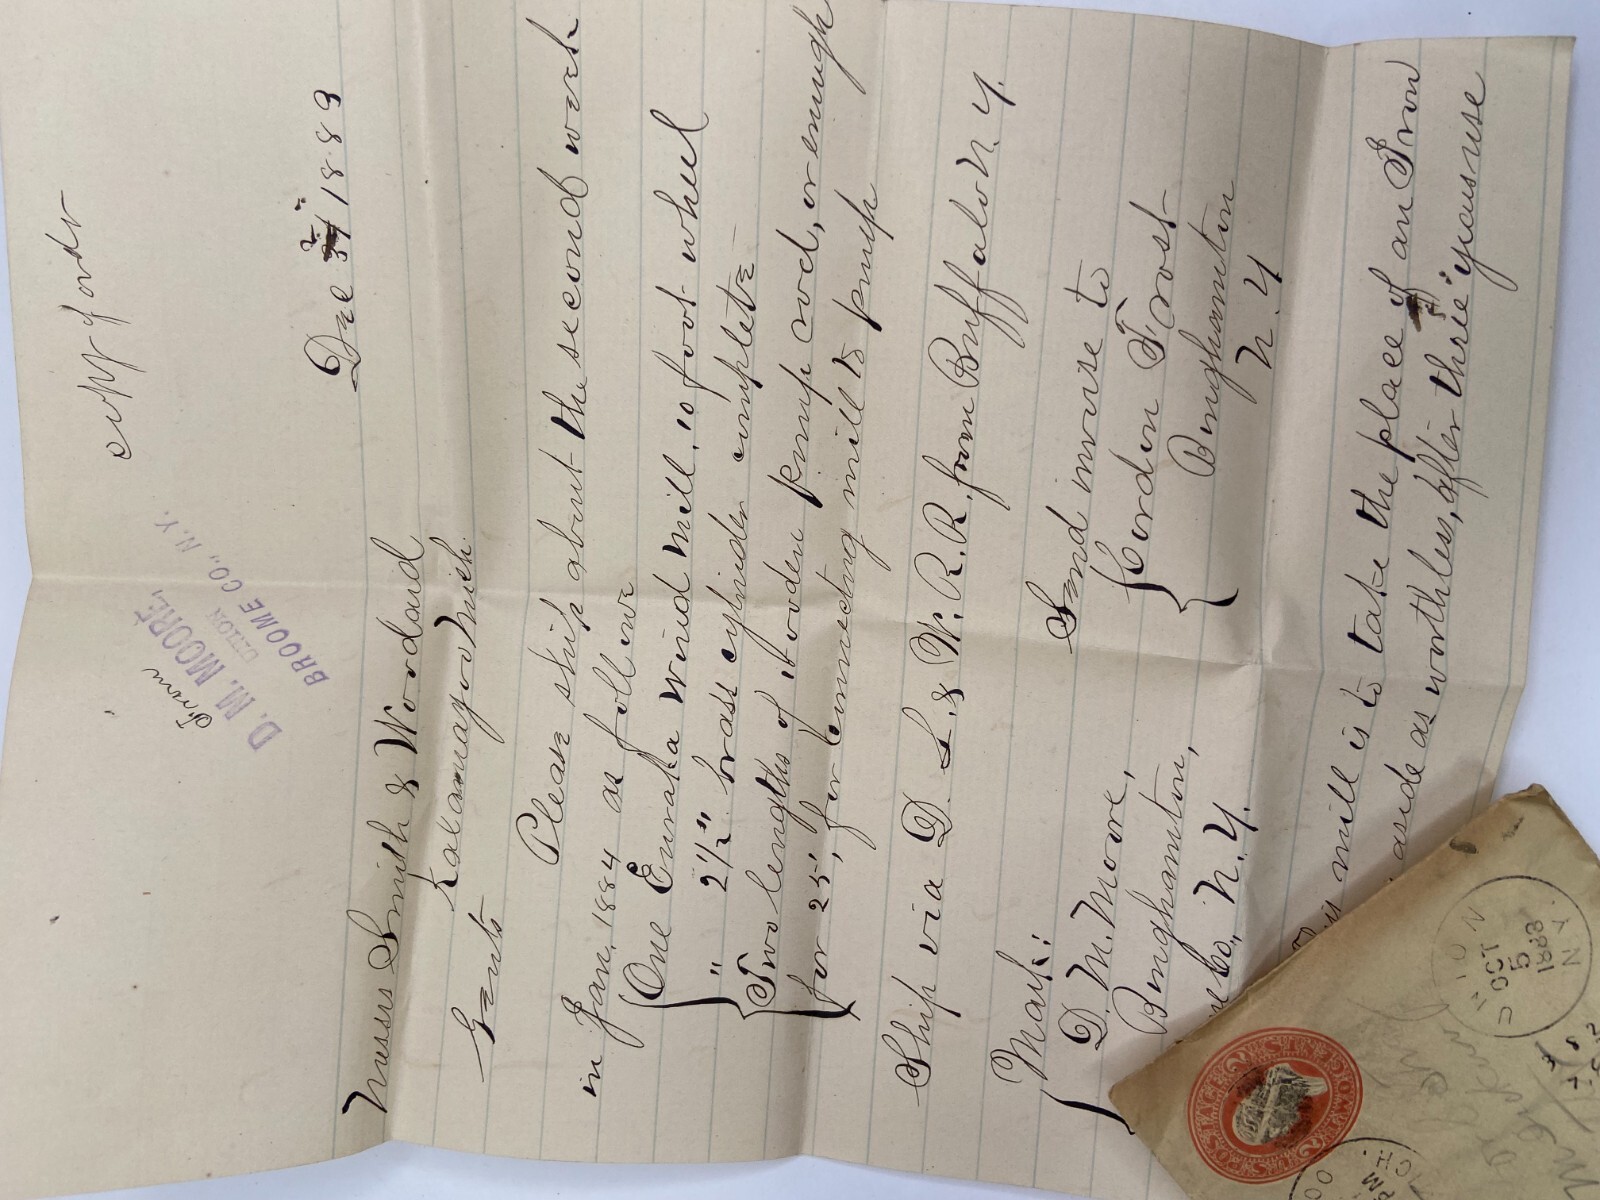 copy of order
From
D. M. MOORE,
UNION
BROOME CO., N.Y.
Dec 3rd 1883
Messrs Smith & Woodard
Kalamazoo Mich.
Gents
Please ship about the second week
in Jan. 1884 as follows
One Eureka wind mill, 10 foot wheel
" 2 1/2" brass cylinder complete
Two lengths of wooden pump rod, or enough
for 25', for connecting mill to pump
Ship via D. L. & W. R.R. from Buffalo N.Y.
Mark:
D. M. Moore,
Binghamton,
Co., N.Y.
Send invoice to
Corden Frost
Binghamton
N.Y
mill is to take the place of an Iron
aside as worthless, after three years use
UNION
OCT
5
1883
N.Y.
U.S. POSTAGE
TWO CENTS
PM
CH.